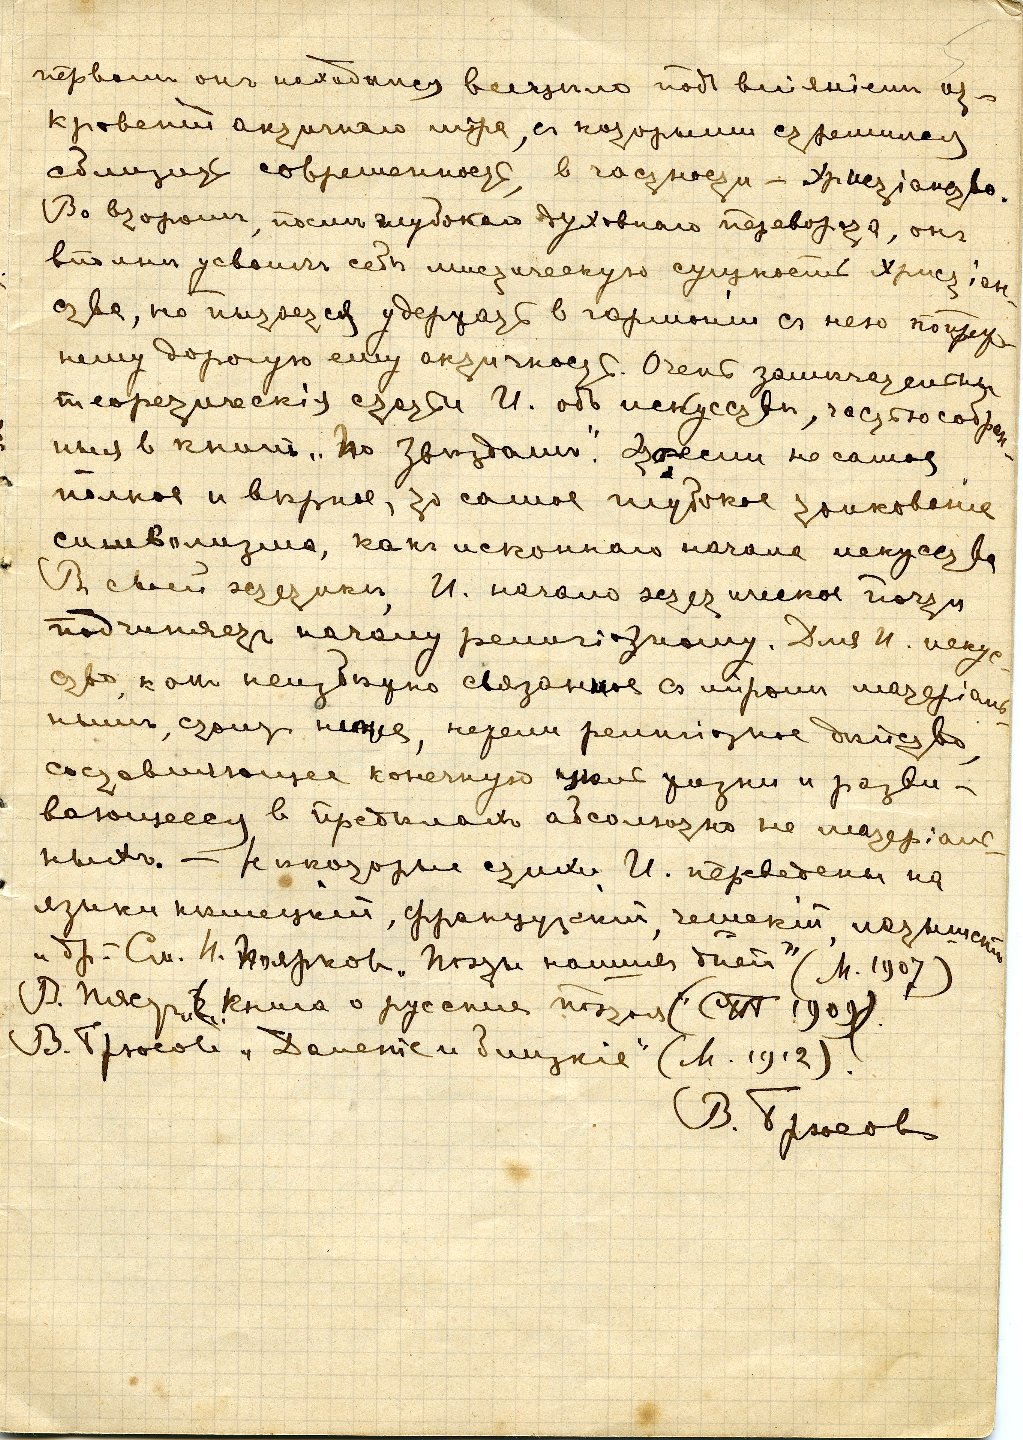 первомъ онъ находился всецѣло подъ вліяніемъ от-
кровеній античнаго міра, съ которыми стремился
сблизить современность, в частности – христіанство.
Во второмъ, послѣ глубокаго духовнаго переворота, онъ
вполнѣ усвоилъ себѣ мистическую сущность христіан-
ства, но пытается удержать в гармоніи съ нею попреж-
нему дорогую ему античность. Очень замѣчательны
теоретическія статьи И. объ искусствѣ, частью собран-
ныя в книгѣ „По Звѣздамъ". если не самое
полное и вѣрное, то самое глубокое толкованіе
символизма, какъ исконнаго начала искусства
В своей эстетикѣ, И. начало эстетическое почти
подчиняетъ началу религіозному. Для И. искус-
ство, какъ неизбѣжно связанное съ міромъ матеріаль-
нымъ, стоитъ ниже, нежели религіозное дѣйство,
составляющее конечную цѣль жизни и разви-
вающееся в предѣлахъ абсолютно не матеріаль-
ныхъ. — Нѣкоторые стихи И. переведены на
языки нѣмецкій, французскій, чешскій, латышскій
и др. – См. Н. Поярков „Поэты нашихъ дней" (М. 1907)
В. Пяст „Книга о русских поэтах" (СПб 1909).
В. Брюсовъ „Далекіе и близкіе" (М. 1912).
В. Брюсов